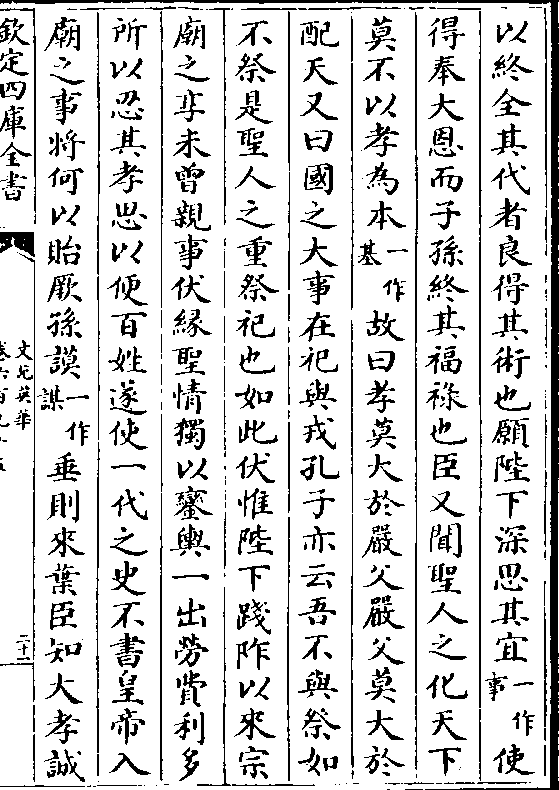 以終全其代者良得其術也願陛下深思其宜一作事使
得奉大恩而子孫終其福祿也臣又聞聖人之化天下
莫不以孝為本一作基故曰孝莫大於嚴父嚴父莫大於
配天又曰國之大事在祀與戎孔子亦云吾不與祭如
不祭是聖人之重祭祀也如此伏惟陛下踐阼以來宗
廟之享未曾親事伏緣聖情獨以鑾輿一出勞費利多
所以忍其孝思以便百姓遂使一代之史不書皇帝入
廟之事將何以貽厥孫謨一作謀垂則來葉臣知大孝誠
欽定四庫全書
文苑英華
卷六百九十五
二十二